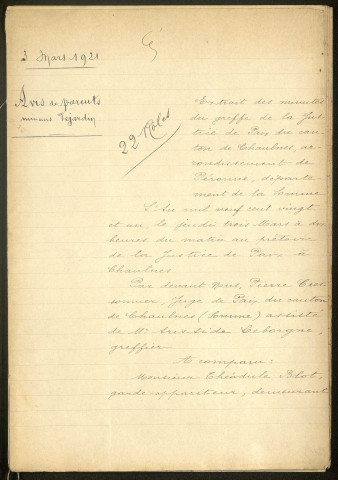 3 Mars 1921
Avis de parents
mineurs Tejardin
22 Rôles
Extrait des minutes
du greffe de la Jus
tice de Paix du can
ton de Chaulnes, ar
rondissement de
Péronne, départe
ment de la Somme
L'An mil neuf cent vingt
et un, le jeudi trois Mars à dix
heures du matin au prétoire
de la Justice de Paix à
Chaulnes
Par devant Nous, Pierre Cres
sonnier, Juge de Paix du canton
de Chaulnes (Somme) assisté
de Me Aristide Leborgne,
greffier
A comparu:
Monsieur Théodule Blot,
garde appariteur, demeurant